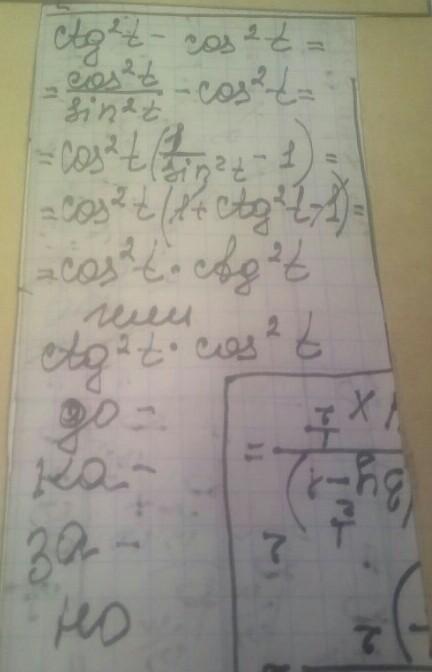 ctg²t - cos²t =
= cos²t/sin²t - cos²t =
= cos²t(1/sin²t - 1) =
= cos²t(1 + ctg²t - 1) =
= cos²t · ctg²t
или
ctg²t · cos²t
до -
ка -
за -
но